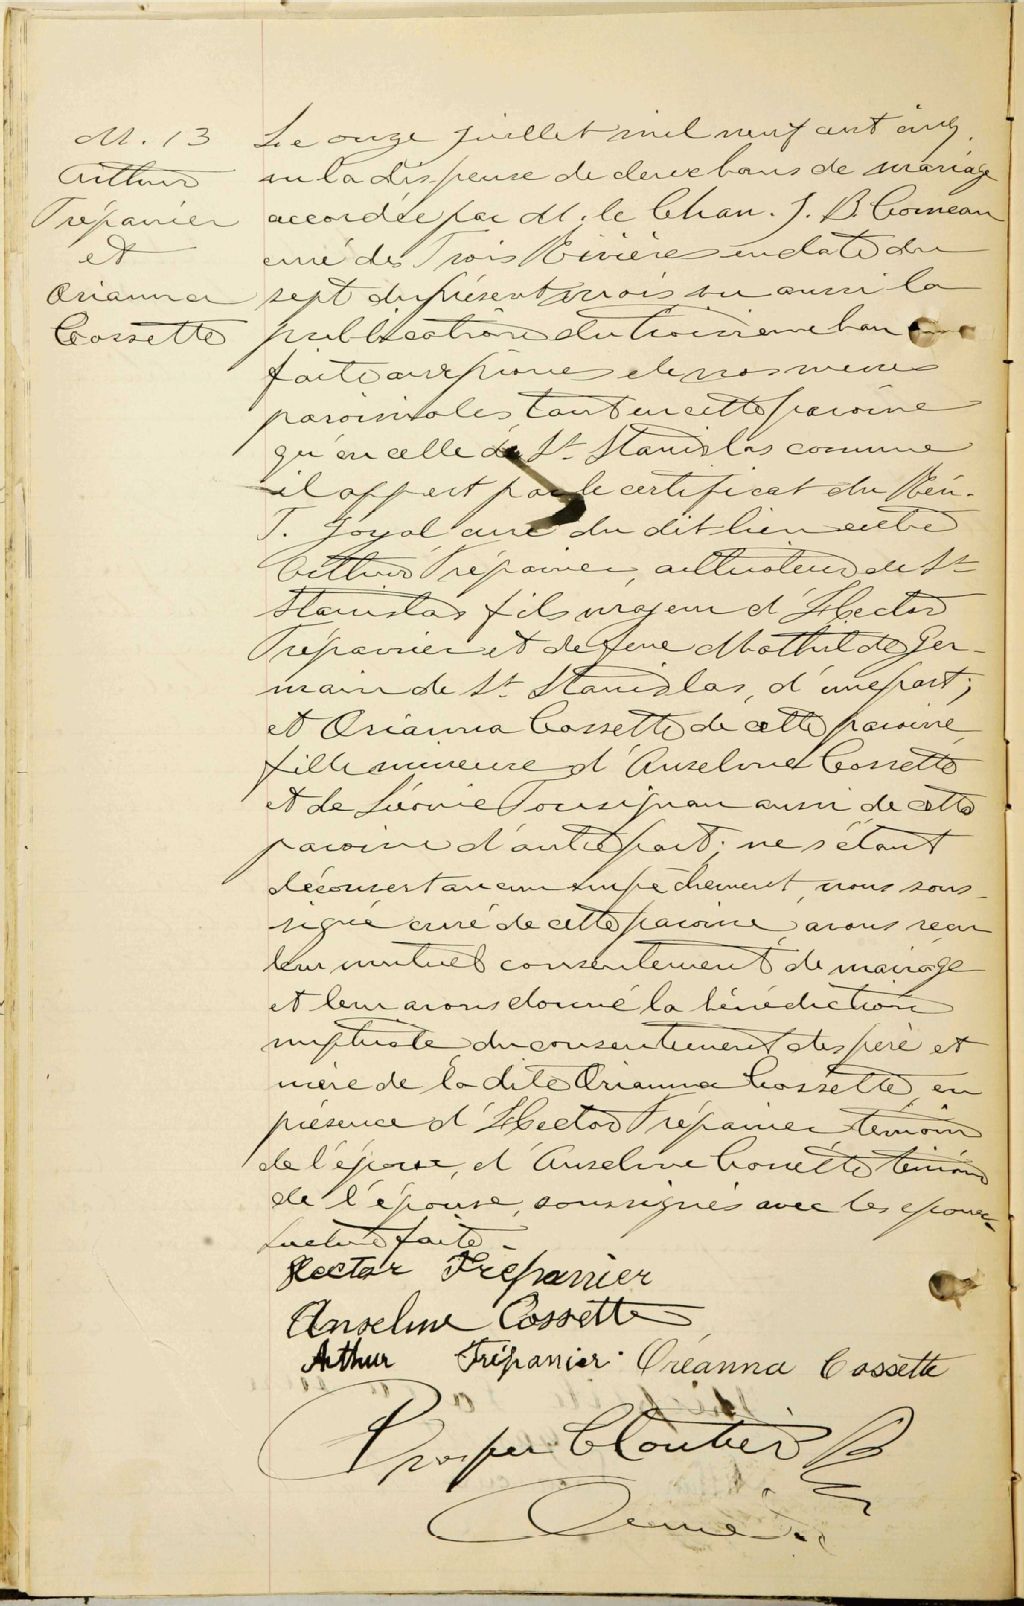 M. 13
Arthur
Trépanier
et
Orianna
Cossette
Le onze juillet mil neuf cent cinq,
vu la dispense de deux bans de mariage
accordée par M. le Chan. J. B. Comeau
curé des Trois Rivières en date du
sept du présent mois vu aussi la
publication du troisième ban
faite aux prônes de nos messes
paroissiales tant en cette paroisse
qu'en celle de St Stanislas comme
il appert par le certificat du Rév.
T. Joyal curé du dit lieu entre
Arthur Trépanier, cultivateur de St
Stanislas fils majeur d'Hector
Trépanier et de feue Mathilde Ger-
main de St Stanislas, d'une part;
et Orianna Cossette de cette paroisse
fille mineure d'Anselme Cossette
et de Léonie Tousignan aussi de cette
paroisse d'autre part; ne s'étant
découvert aucun empêchement, nous sous-
signé curé de cette paroisse, avons reçu
leur mutuel consentement de mariage
et leur avons donné la bénédiction
nuptiale du consentement des père et
mère de la dite Orianna Cossette, en
présence d'Hector Trépanier témoin
de l'époux, d'Anselme Cossette témoin
de l'épouse, soussignés avec les époux,
lecture faite
Hector Trépanier
Anselme Cossette
Arthur Trépanier Oréanna Cossette
Prosper Cloutier Ptre
Curé